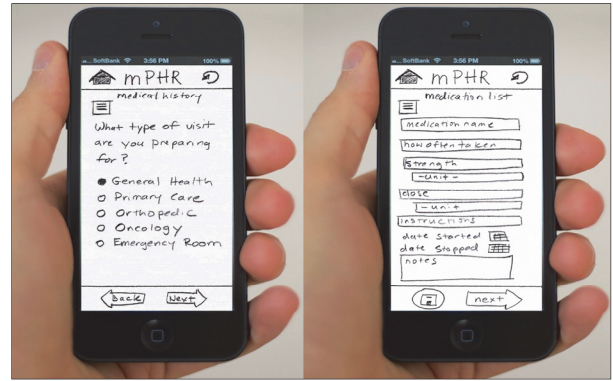 SoftBank 3:56 PM 100%
mPHR
medical history
What type of visit
are you preparing
for?
General Health
Primary Care
Orthopedic
Oncology
Emergency Room
Back Next
SoftBank 3:56 PM 100%
mPHR
medication list
medication name
how often taken
strength
-unit-
dose
-unit
instructions
date started
date stopped
notes
next